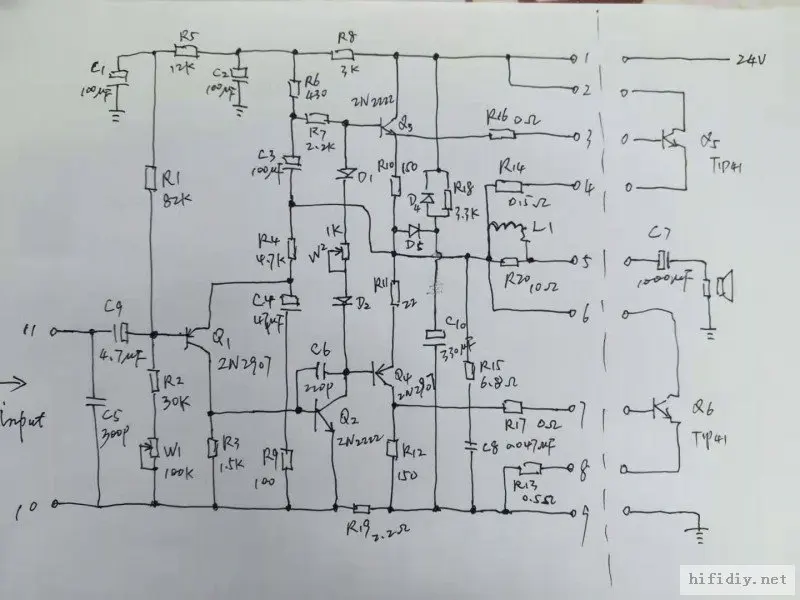 R5
12K
C1
100μF
C2
100μF
R8
3K
R6
430
1
24V
2
2N2222
Q3
R7
2.2K
R16 0Ω
3
Q5
TIP41
C3
100μF
D1
R10
150
R14
0.15Ω
4
R1
82K
D4
R18
3.3K
L1
D5
1K
W2
R4
4.7K
R20 10Ω
5
C7
1000μF
C4
47μF
D2
R11
22
C10
330μF
6
11
C9
4.7μF
Q1
2N2907
C6
220p
Q4
2N2907
R15
6.8Ω
R2
30K
input
C5
300p
Q2
2N2222
R17 0Ω
7
Q6
TIP41
W1
100K
R3
1.5K
R9
100
R12
150
C8 0.047μF
R13
8
10
R19 2.2Ω
9
hifidiy.net